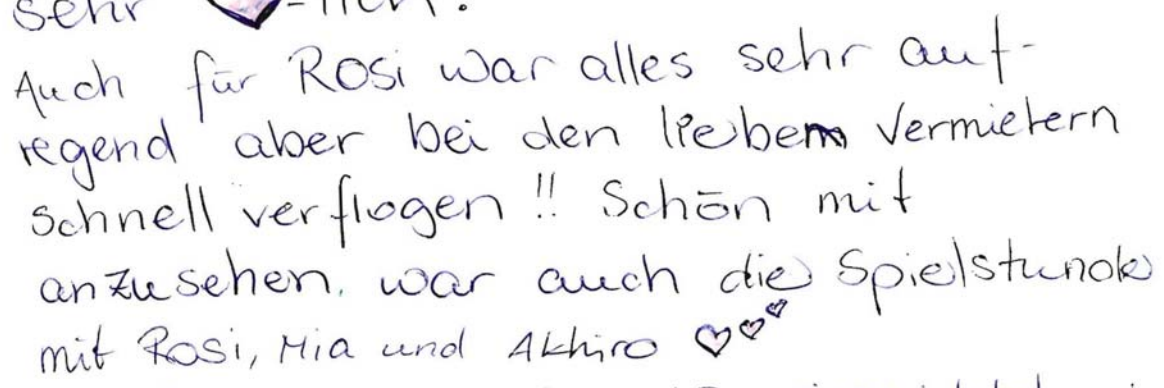 sehr
Auch für Rosi war alles sehr auf-
regend aber bei den lieben Vermietern
schnell verflogen !! Schön mit
anzusehen, war auch die Spielstunde
mit Rosi, Mia und Akhiro